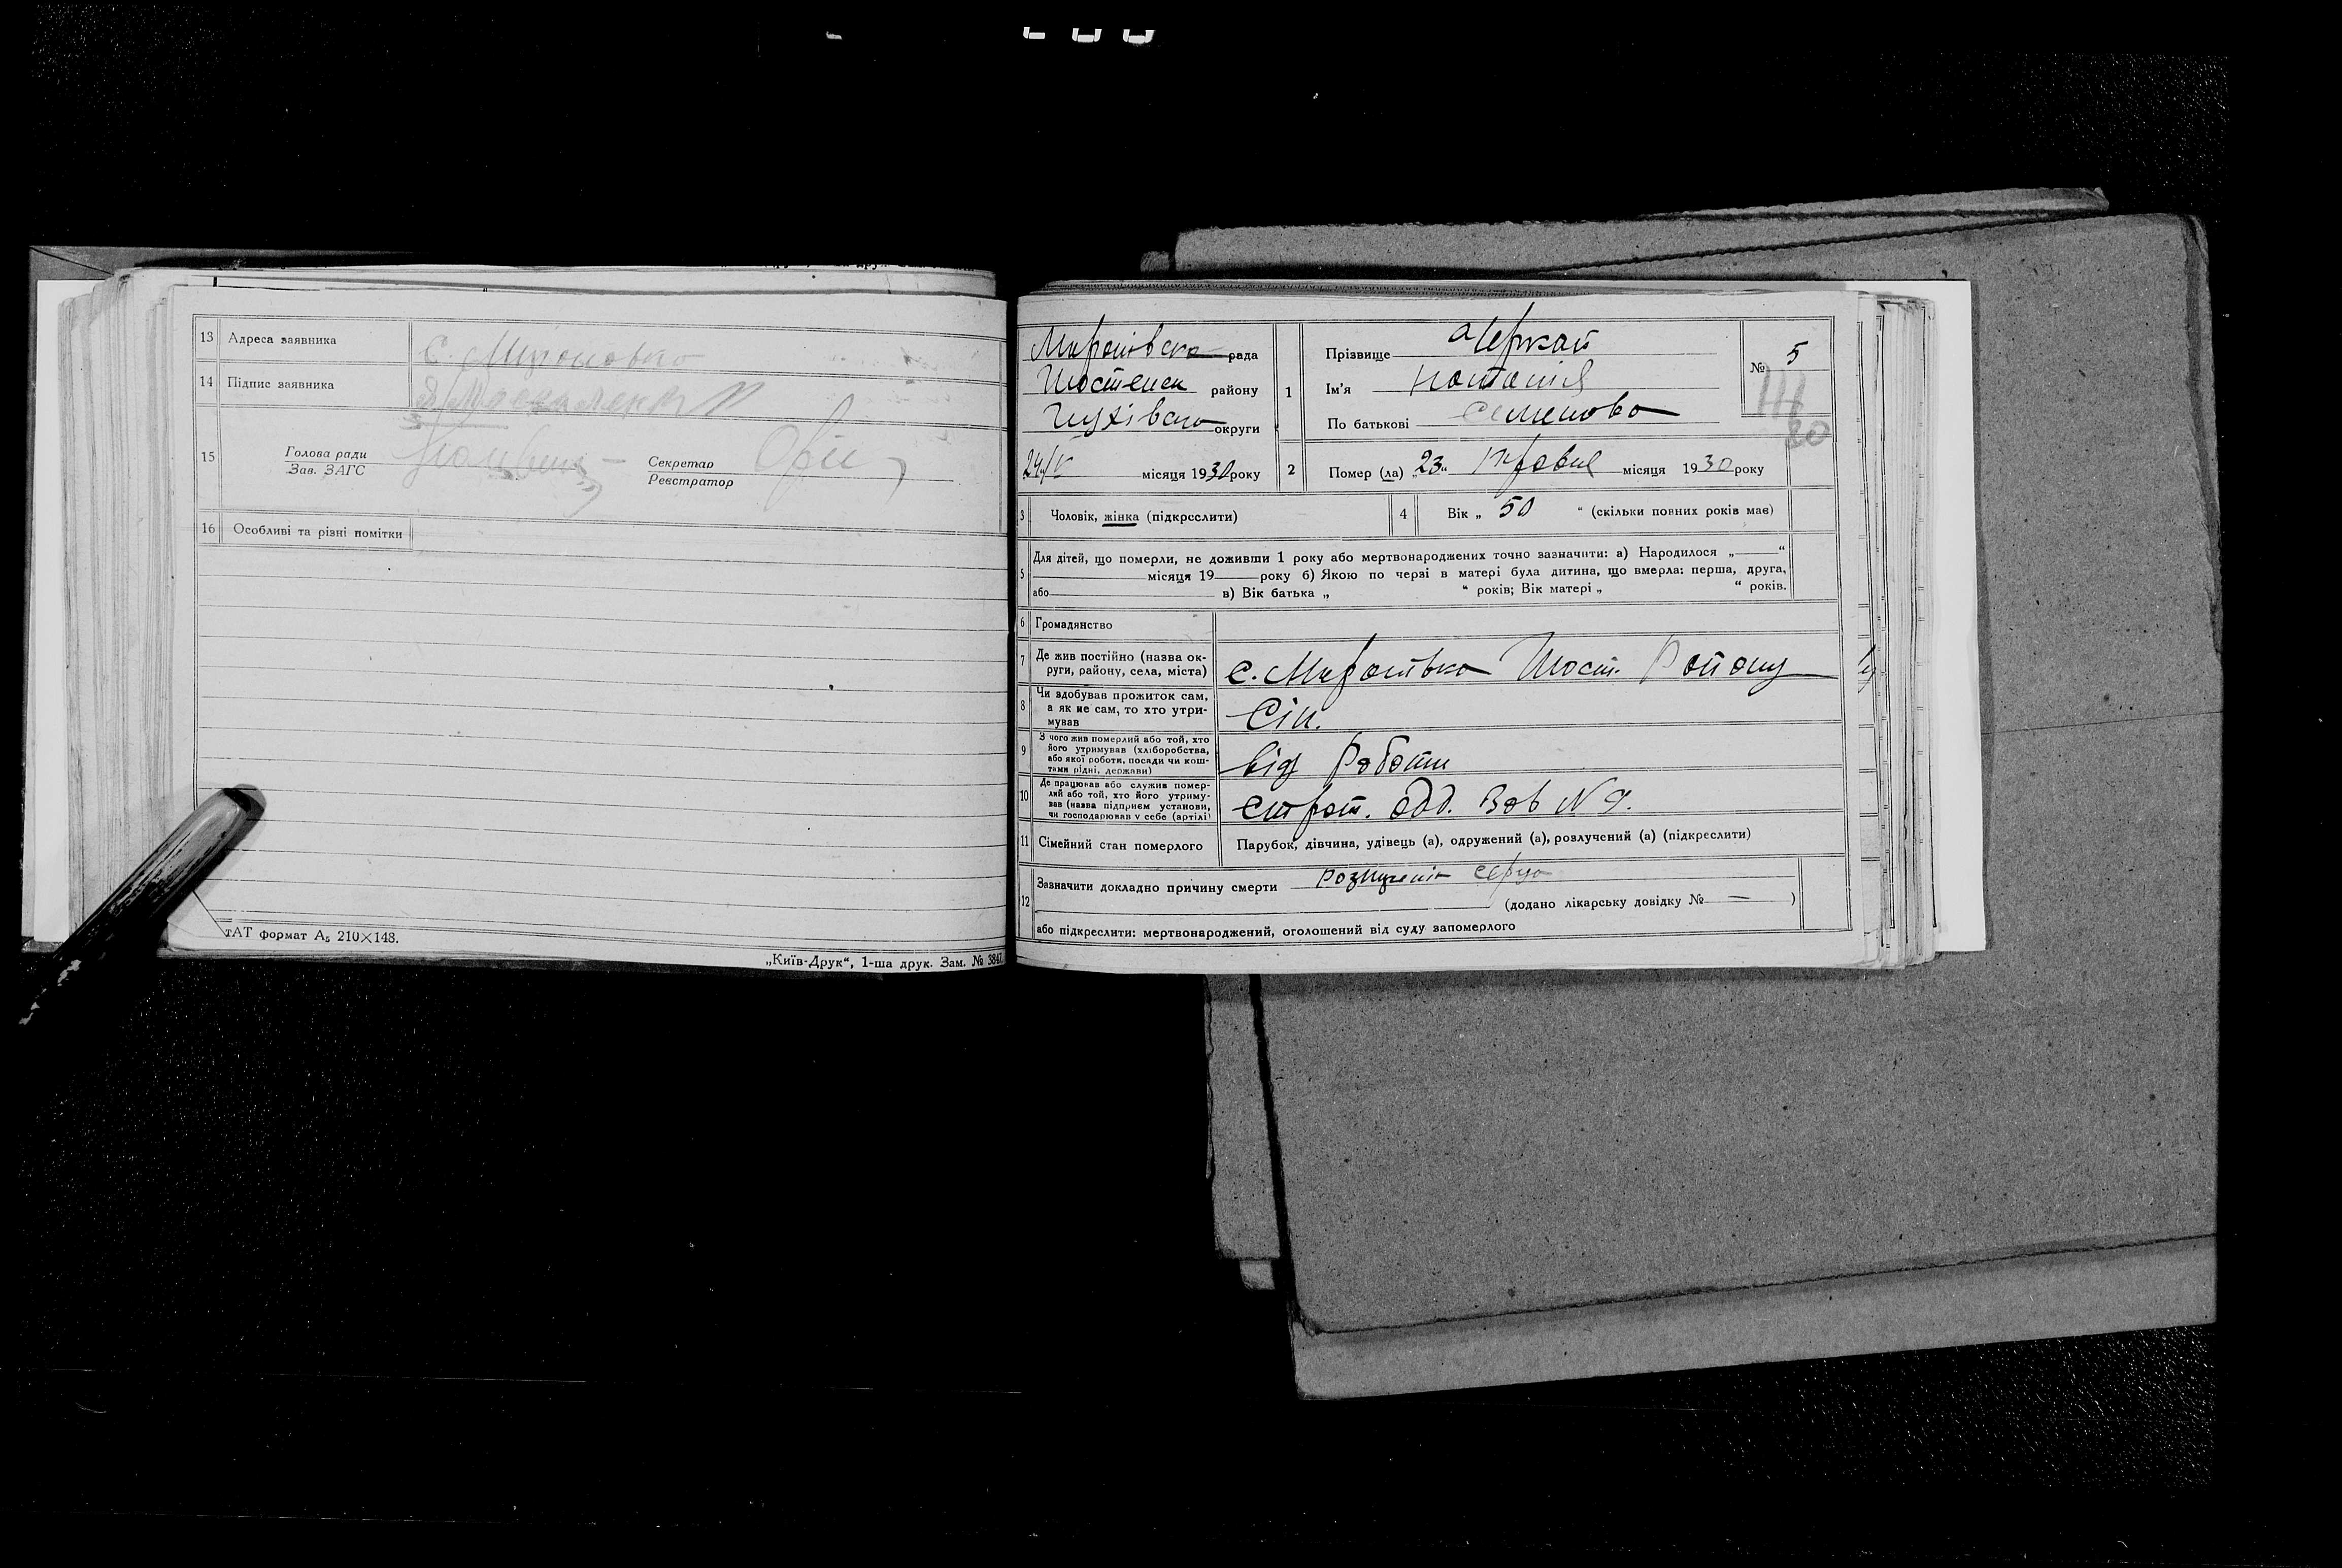 13 Адреса заявника с. Мироновка
14 Підпис заявника
15 Голова ради
Зав. ЗАГС
Секретар
Реєстратор
16 Особливі та різні помітки
тАТ формат А₅ 210×148.
„Київ-Друк“, 1-ша друк. Зам. № 3847
рада
Шостенск району
Глухівсько округи
24/V місяця 1930 року
1 Прізвище
Ім’я Наталія
По батькові Семенова
№ 5
2 Помер (ла) „23“ Травня місяця 1930 року
3 Чоловік, жінка (підкреслити)
4 Вік „ 50 “ (скільки повних років має)
5 Для дітей, що померли, не доживши 1 року або мертвонароджених точно зазначити: а) Народилося „ “
місяця 19 року б) Якою по черзі в матері була дитина, що вмерла: перша, друга,
або в) Вік батька „ “ років; Вік матері „ “ років.
6 Громадянство
7 Де жив постійно (назва ок-
руги, району, села, міста)
с. Шост. Району
8 Чи здобував прожиток сам,
а як не сам, то хто утри-
мував
Сін.
9 З чого жив померлий або той, хто
його утримував (хліборобства,
або якої роботи, посади чи кош-
тами рідні, держави)
від Работи
10 Де працював або служив помер-
лий або той, хто його утриму-
вав (назва підприєм установи,
чи господарював у себе (артілі)
одд. Зав N 9.
11 Сімейний стан померлого Парубок, дівчина, удівець (а), одружений (а), розлучений (а) (підкреслити)
12 Зазначити докладно причину смерти серца
(додано лікарську довідку № — )
або підкреслити: мертвонароджений, оголошений від суду запомерлого